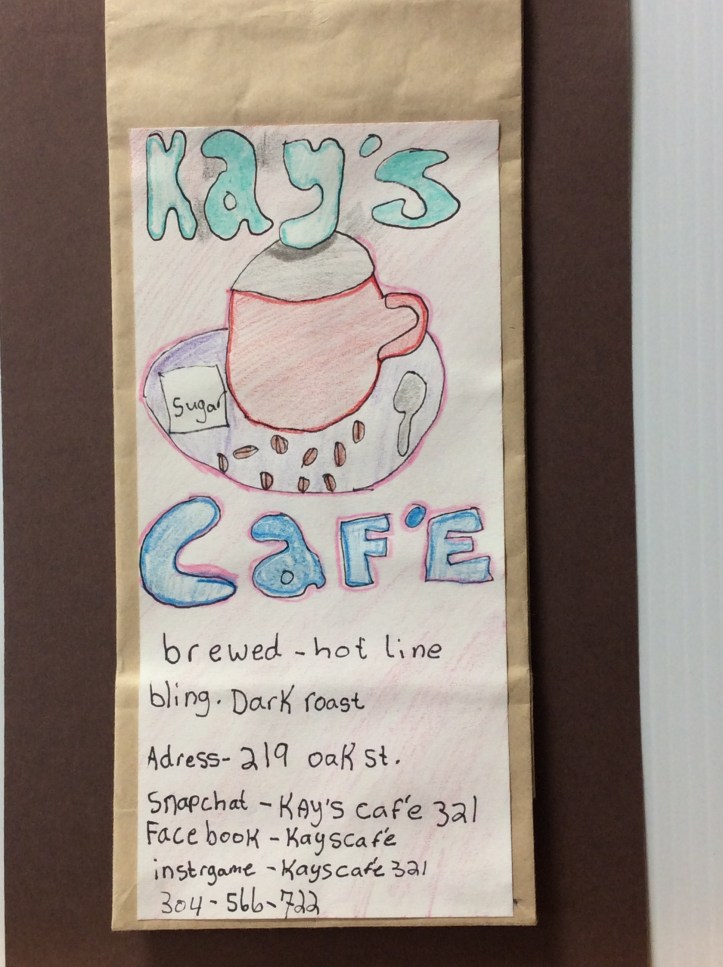 Kay's
Sugar
CaF'E
brewed - hot line
bling. Dark roast
Adress- 219 oak st.
Snapchat - KAy's cafe 321
Face book - Kayscafe
instrgame - Kayscafe 321
304-566-722